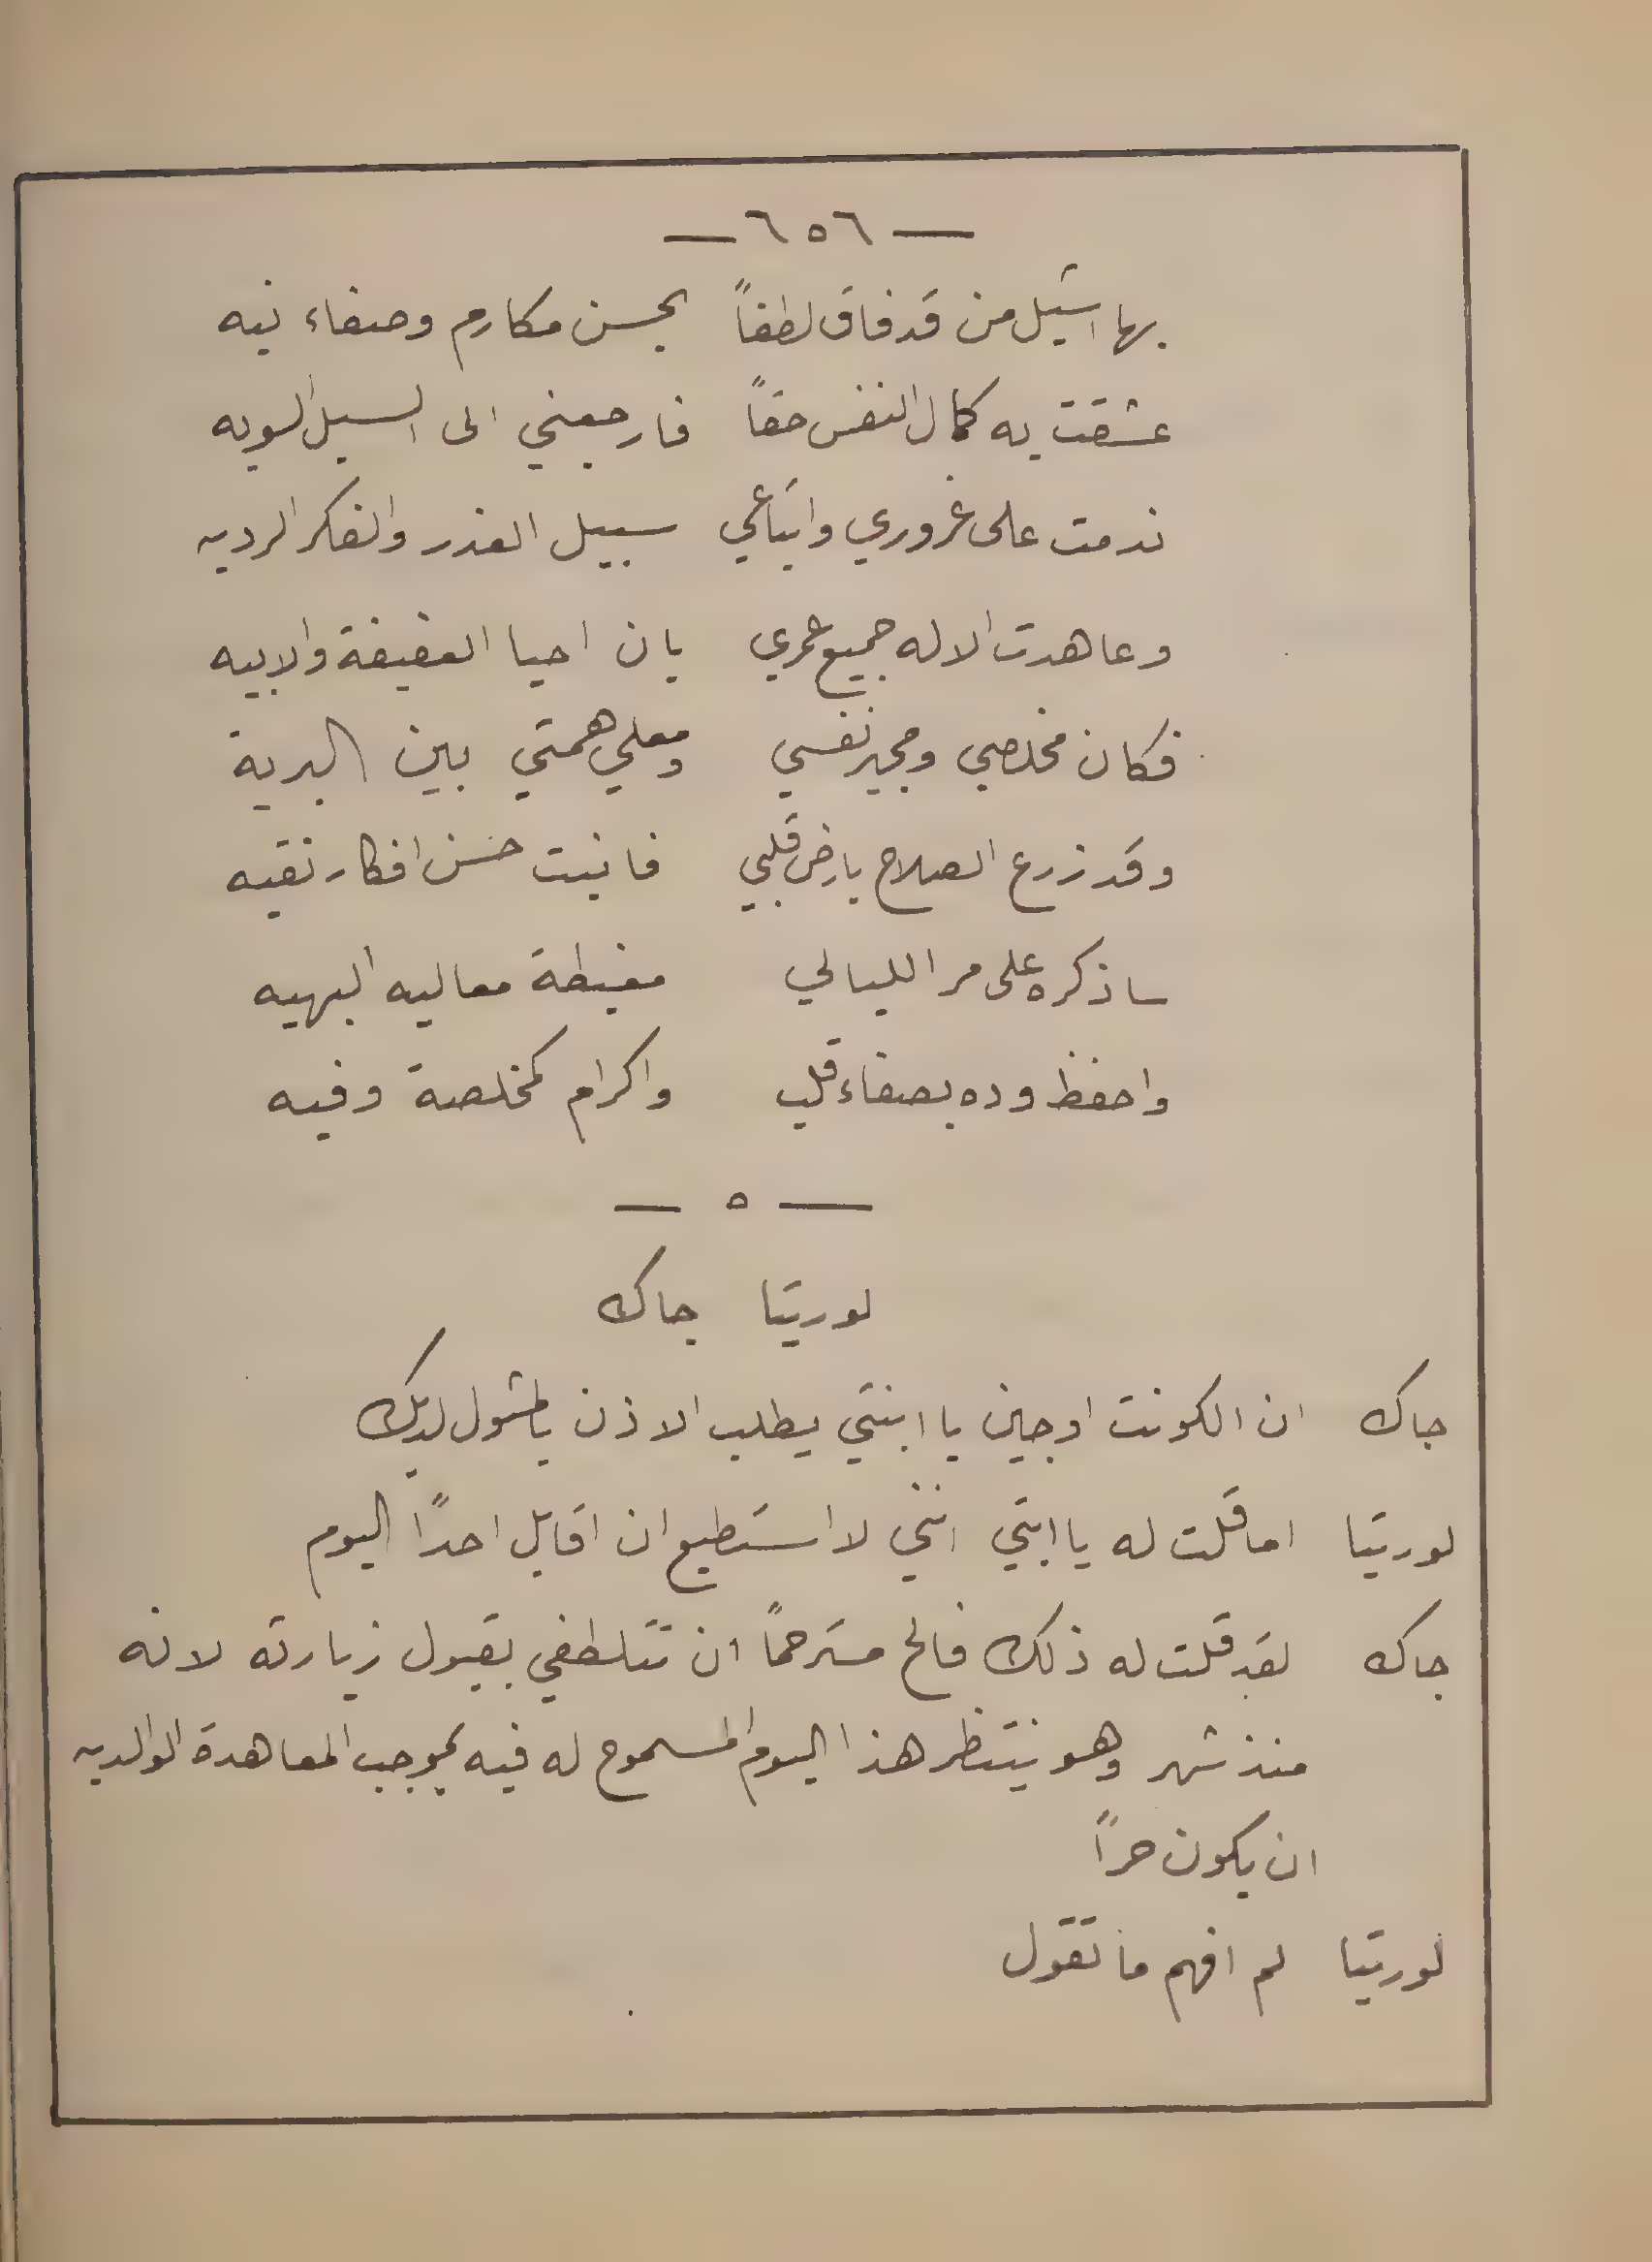 — ٦٥٦ —
بها استميل من قد فاق لطفاً بحسن مكارم وصفاء نيه
عشقت به كمال النفس حقاً فارجعني الى السبل السويه
ندمت على غروري واتباعي سبيل الغدر والفكر الرديه
وعاهدت الاله جميع عمري بان احيا العفيفة والابيه
فكان مخلصي ومجير نفسي ومعلي همتي بين البرية
وقد زرع الصلاح بارض قلبي فانبتت حسن افكار نقيه
ساذكره على مر الليالي مغبطة معاليه البهيه
واحفظ وده بصفاء قلب واكرام كمخلصة وفيه
— ٥ —
لوريتا جاك
جاك ان الكونت اوجين يا ابنتي يطلب الاذن بالمثول لديك
لوريتا اما قلت له يا ابتي انني لا استطيع ان اقابل احدًا اليوم
جاك لقد قلت له ذلك فالح مسترحماً ان تتلطفي بقبول زيارته لانه
منذ شهر وهو ينتظر هذا اليوم المسموح له فيه بموجب المعاهدة الوالديه
ان يكون حراً
لوريتا لم افهم ما تقول